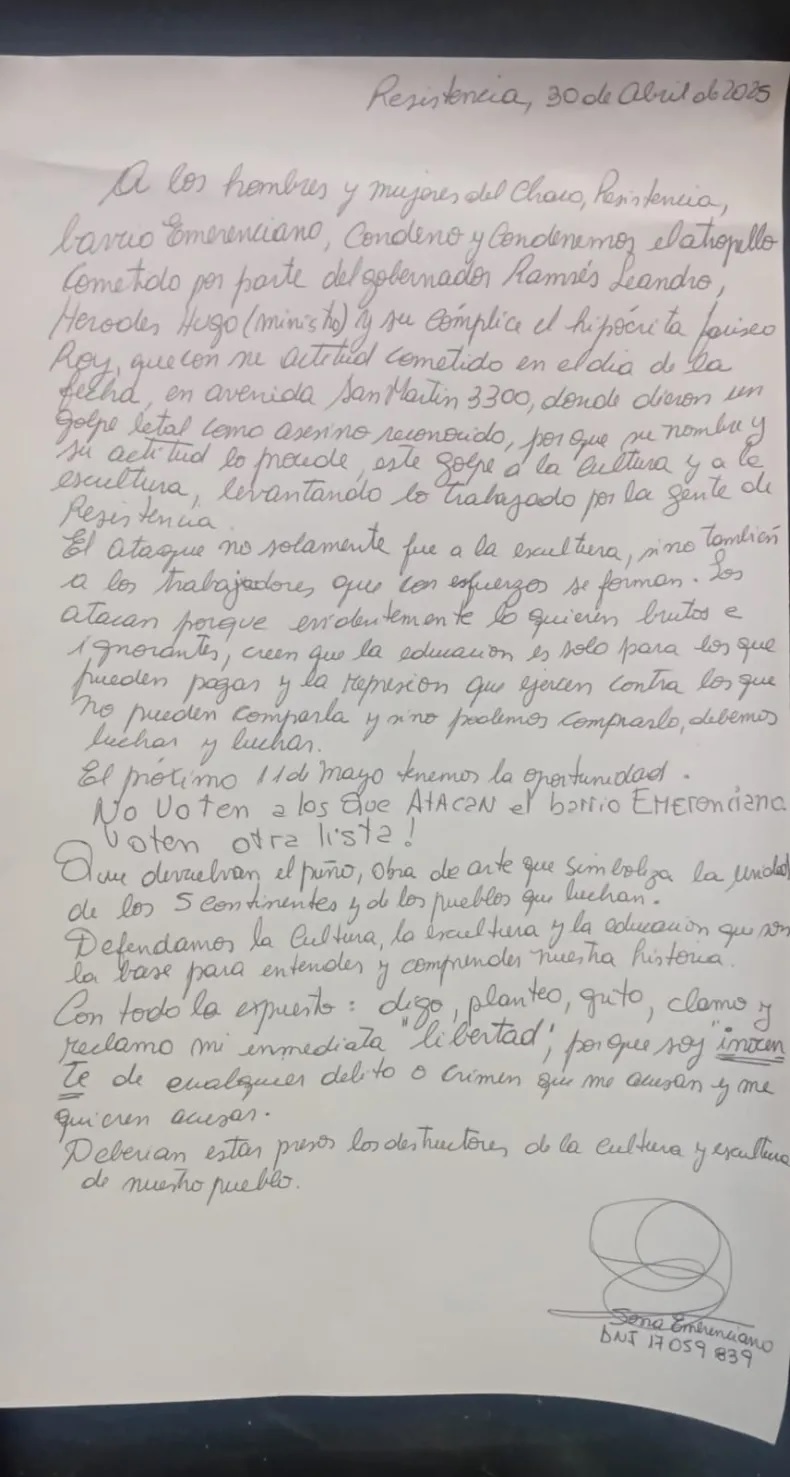 Resistencia, 30 de Abril de 2025
A los hombres y mujeres del Chaco, Resistencia,
barrio Emerenciano, Condeno y Condenemos el atropello
Cometido por parte del gobernador Ramsés Leandro,
Herodes Hugo (ministro) y su cómplice el hipócrita fariseo
Roy, que con su actitud cometido en el dia de la
fecha, en avenida San Martin 3300, donde dieron un
golpe letal como asesino reconocido, porque su nombre y
su actitud lo precede, este golpe a la cultura y a la
escultura, levantando lo trabajado por la gente de
Resistencia.
El ataque no solamente fue a la escultura, sino también
a los trabajadores que con esfuerzos se forman. Los
atacan porque evidentemente lo quieren brutos e
ignorantes, creen que la educacion es solo para los que
pueden pagar y la represion que ejercen contra los que
no pueden comprarla y sino podemos comprarlo, debemos
luchar y luchar.
El próximo 11 de Mayo tenemos la oportunidad.
No Voten a los Que AtACaN el barrio EMErenciano
Voten otra lista!
Que devuelvan el puño, obra de arte que simboliza la unidad
de los 5 continentes y de los pueblos que luchan.
Defendamos la Cultura, la escultura y la educacion que son
la base para entender y comprender nuestra historia.
Con todo lo expuesto: digo, planteo, grito, clamo y
reclamo mi inmediata "libertad", porque soy "inocen
te de cualquier delito o crimen que me acusan y me
quieren acusar.
Deberian estar presos los destructores de la cultura y escultura
de nuestro pueblo.
Sena Emerenciano
DNI 17 059 839